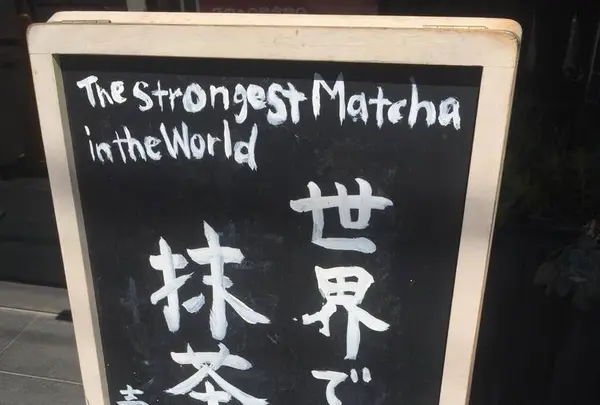 The Strongest Matcha
in the World
世界で
抹茶